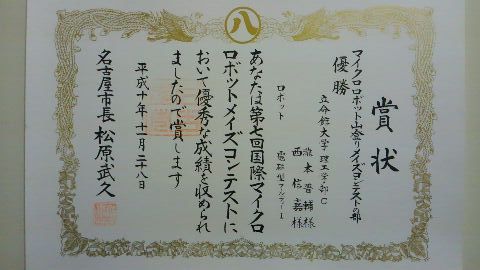 八
賞状
マイクロロボット山登りメイズコンテストの部
優勝
立命館大学理工学部C
本普輔様
西信嘉様
ロボット
電脳型アルティーI
あなたは第七回国際マイクロ
ロボットメイズコンテストに
おいて優秀な成績を収められ
ましたので賞します
平成十年十一月二八日
名古屋市長 松原武久